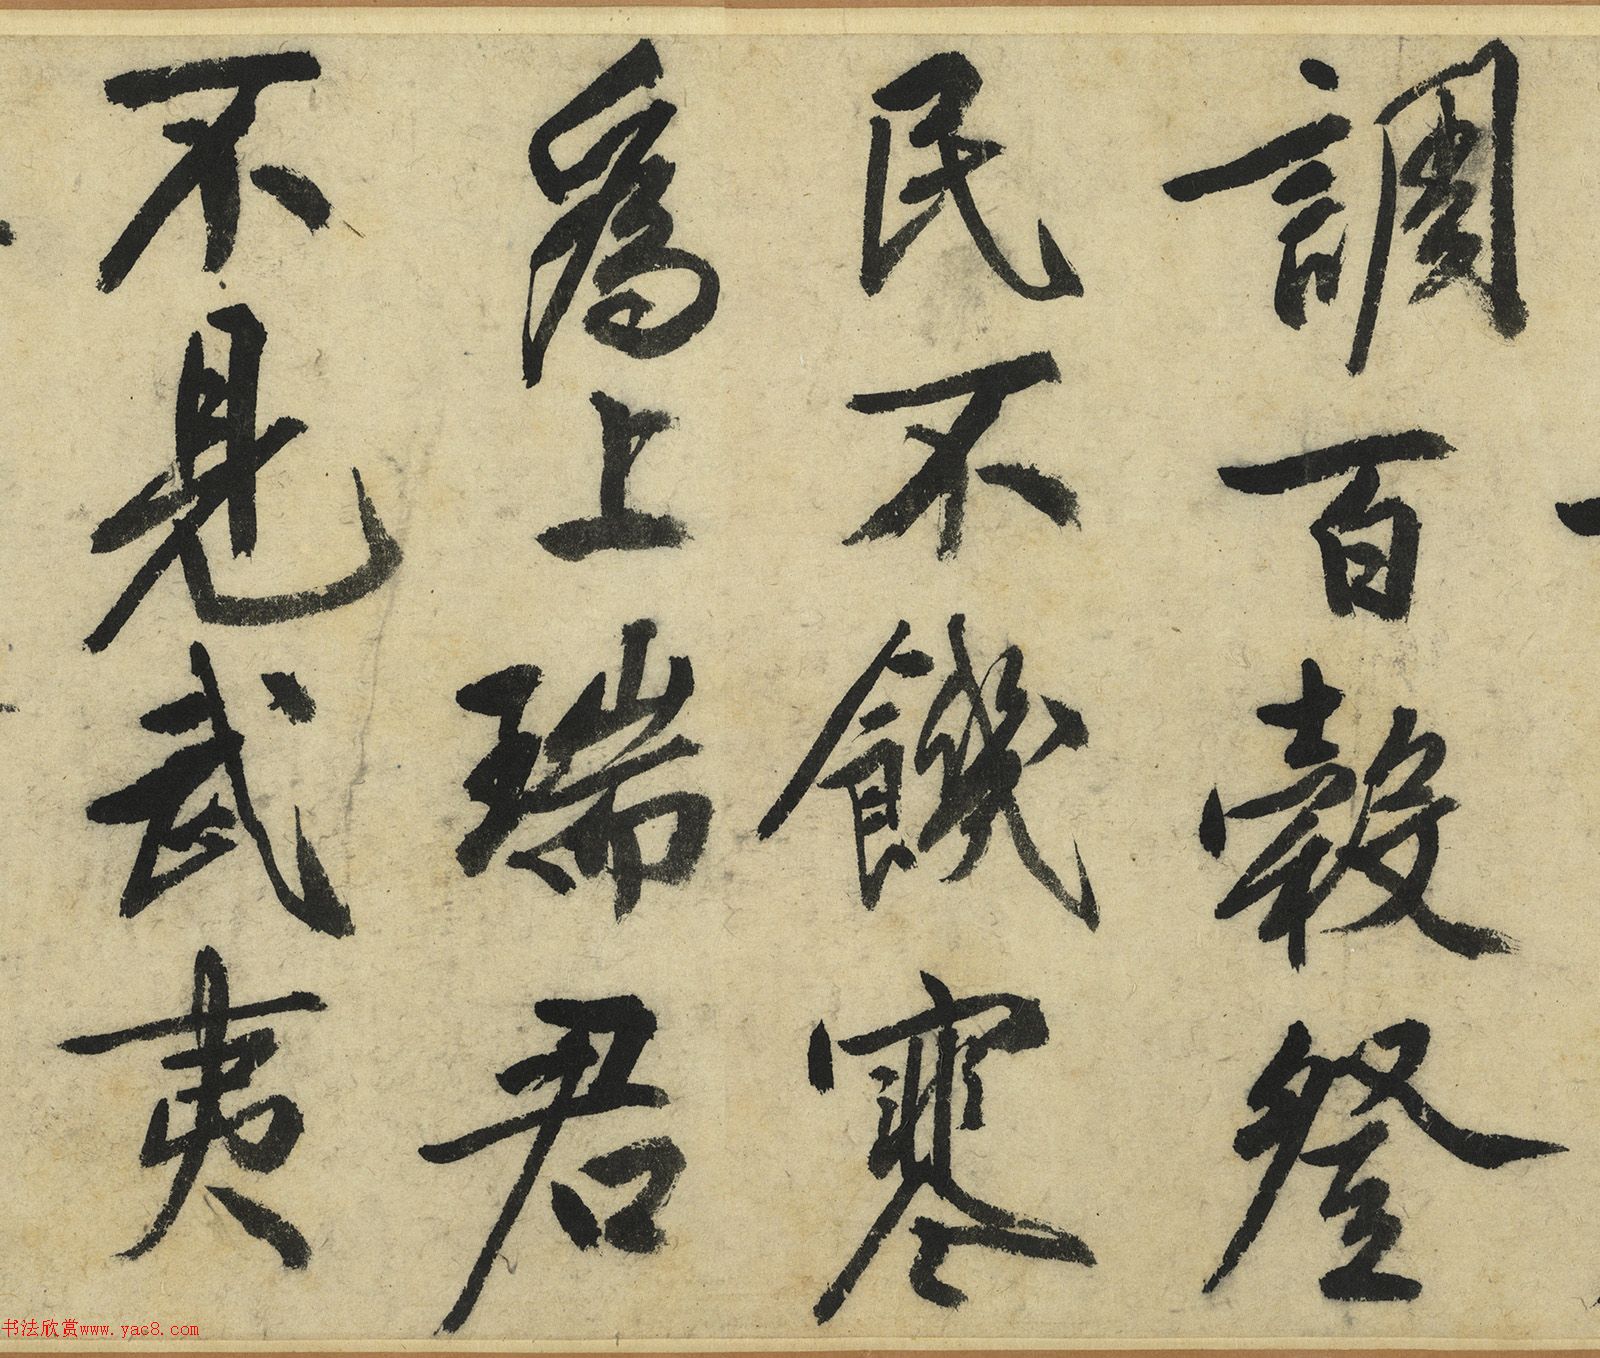 調百穀登
民不饑寒
為上瑞君
不見武夷
书法欣赏www.yac8.com